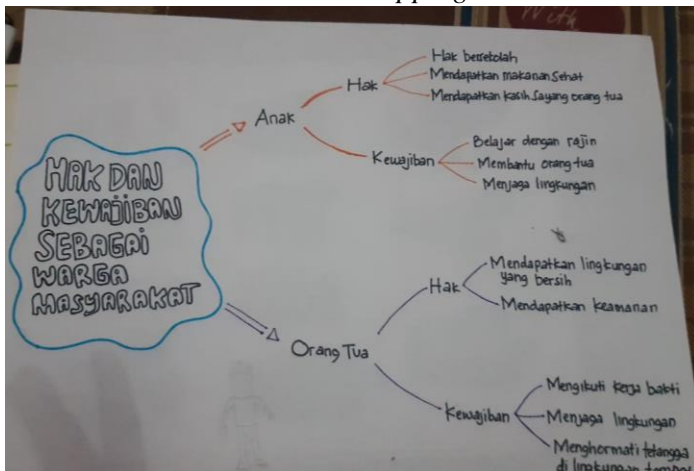 With
HAK DAN
KEWAJIBAN
SEBAGAI
WARGA
MASYARAKAT
Anak
Hak
Hak bersekolah
Mendapatkan makanan sehat
Mendapatkan kasih sayang orang tua
Kewajiban
Belajar dengan rajin
Membantu orang tua
Menjaga lingkungan
Orang Tua
Hak
Mendapatkan lingkungan
yang bersih
Mendapatkan keamanan
Kewajiban
Mengikuti kerja bakti
Menjaga lingkungan
Menghormati tetangga
di lingkungan tempat